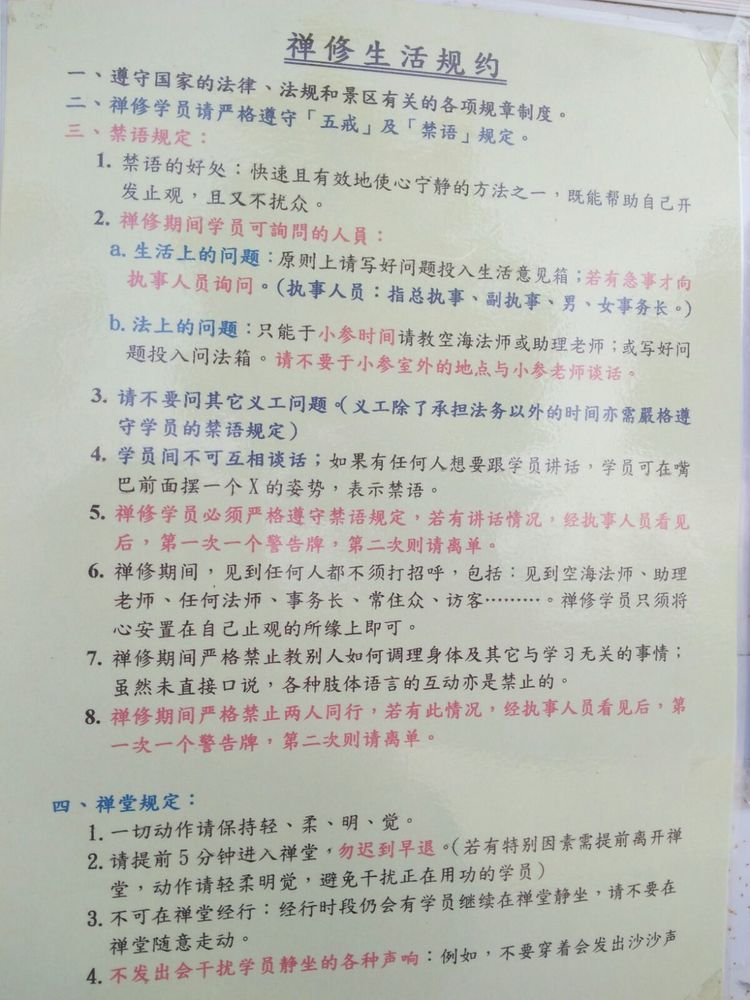 禅修生活规约
一、遵守国家的法律、法规和景区有关的各项规章制度。
二、禅修学员请严格遵守「五戒」及「禁语」规定。
三、禁语规定：
1. 禁语的好处：快速且有效地使心宁静的方法之一，既能帮助自己开
发止观，且又不扰众。
2. 禅修期间学员可詢問的人員：
a. 生活上的问题：原则上请写好问题投入生活意见箱；若有急事才向
执事人员询问。（执事人员：指总执事、副执事、男、女事务长。）
b. 法上的问题：只能于小参时间请教空海法师或助理老师；或写好问
题投入问法箱。请不要于小参室外的地点与小参老师谈话。
3. 请不要问其它义工问题。（义工除了承担法务以外的时间亦需嚴格遵
守学员的禁语规定）
4. 学员间不可互相谈话；如果有任何人想要跟学员讲话，学员可在嘴
巴前面摆一个X的姿势，表示禁语。
5. 禅修学员必须严格遵守禁语规定，若有讲话情况，经执事人员看见
后，第一次一个警告牌，第二次则请离单。
6. 禅修期间，见到任何人都不须打招呼，包括：见到空海法师、助理
老师、任何法师、事务长、常住众、访客………。禅修学员只须将
心安置在自己止观的所缘上即可。
7. 禅修期间严格禁止教别人如何调理身体及其它与学习无关的事情；
虽然未直接口说，各种肢体语言的互动亦是禁止的。
8. 禅修期间严格禁止两人同行，若有此情况，经执事人员看见后，第
一次一个警告牌，第二次则请离单。
四、禅堂规定：
1. 一切动作请保持轻、柔、明、觉。
2. 请提前5分钟进入禅堂，勿迟到早退。（若有特别因素需提前离开禅
堂，动作请轻柔明觉，避免干扰正在用功的学员）
3. 不可在禅堂经行：经行时段仍会有学员继续在禅堂静坐，请不要在
禅堂随意走动。
4. 不发出会干扰学员静坐的各种声响：例如，不要穿着会发出沙沙声